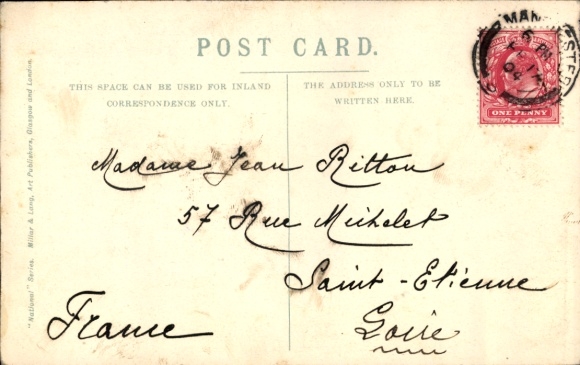 POST CARD.
THIS SPACE CAN BE USED FOR INLAND
CORRESPONDENCE ONLY.
THE ADDRESS ONLY TO BE
WRITTEN HERE.
MANCHESTER
6 PM
04
ONE PENNY
Madame Jean Ritton
57 Rue Michelet
Saint-Etienne
Loire
France
"National" Series. Millar & Lang, Art Publishers, Glasgow and London.